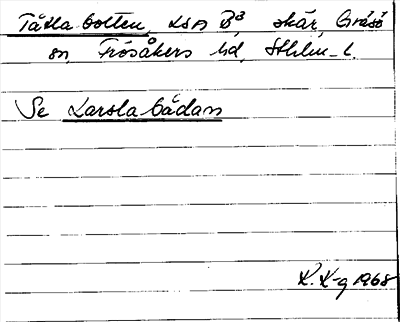 Tåtla botten, LSA B3 skär, Gräsö
sn, Frösåkers hd, Sthlm-l.
Se Larsla bådan
K. K-g 1968